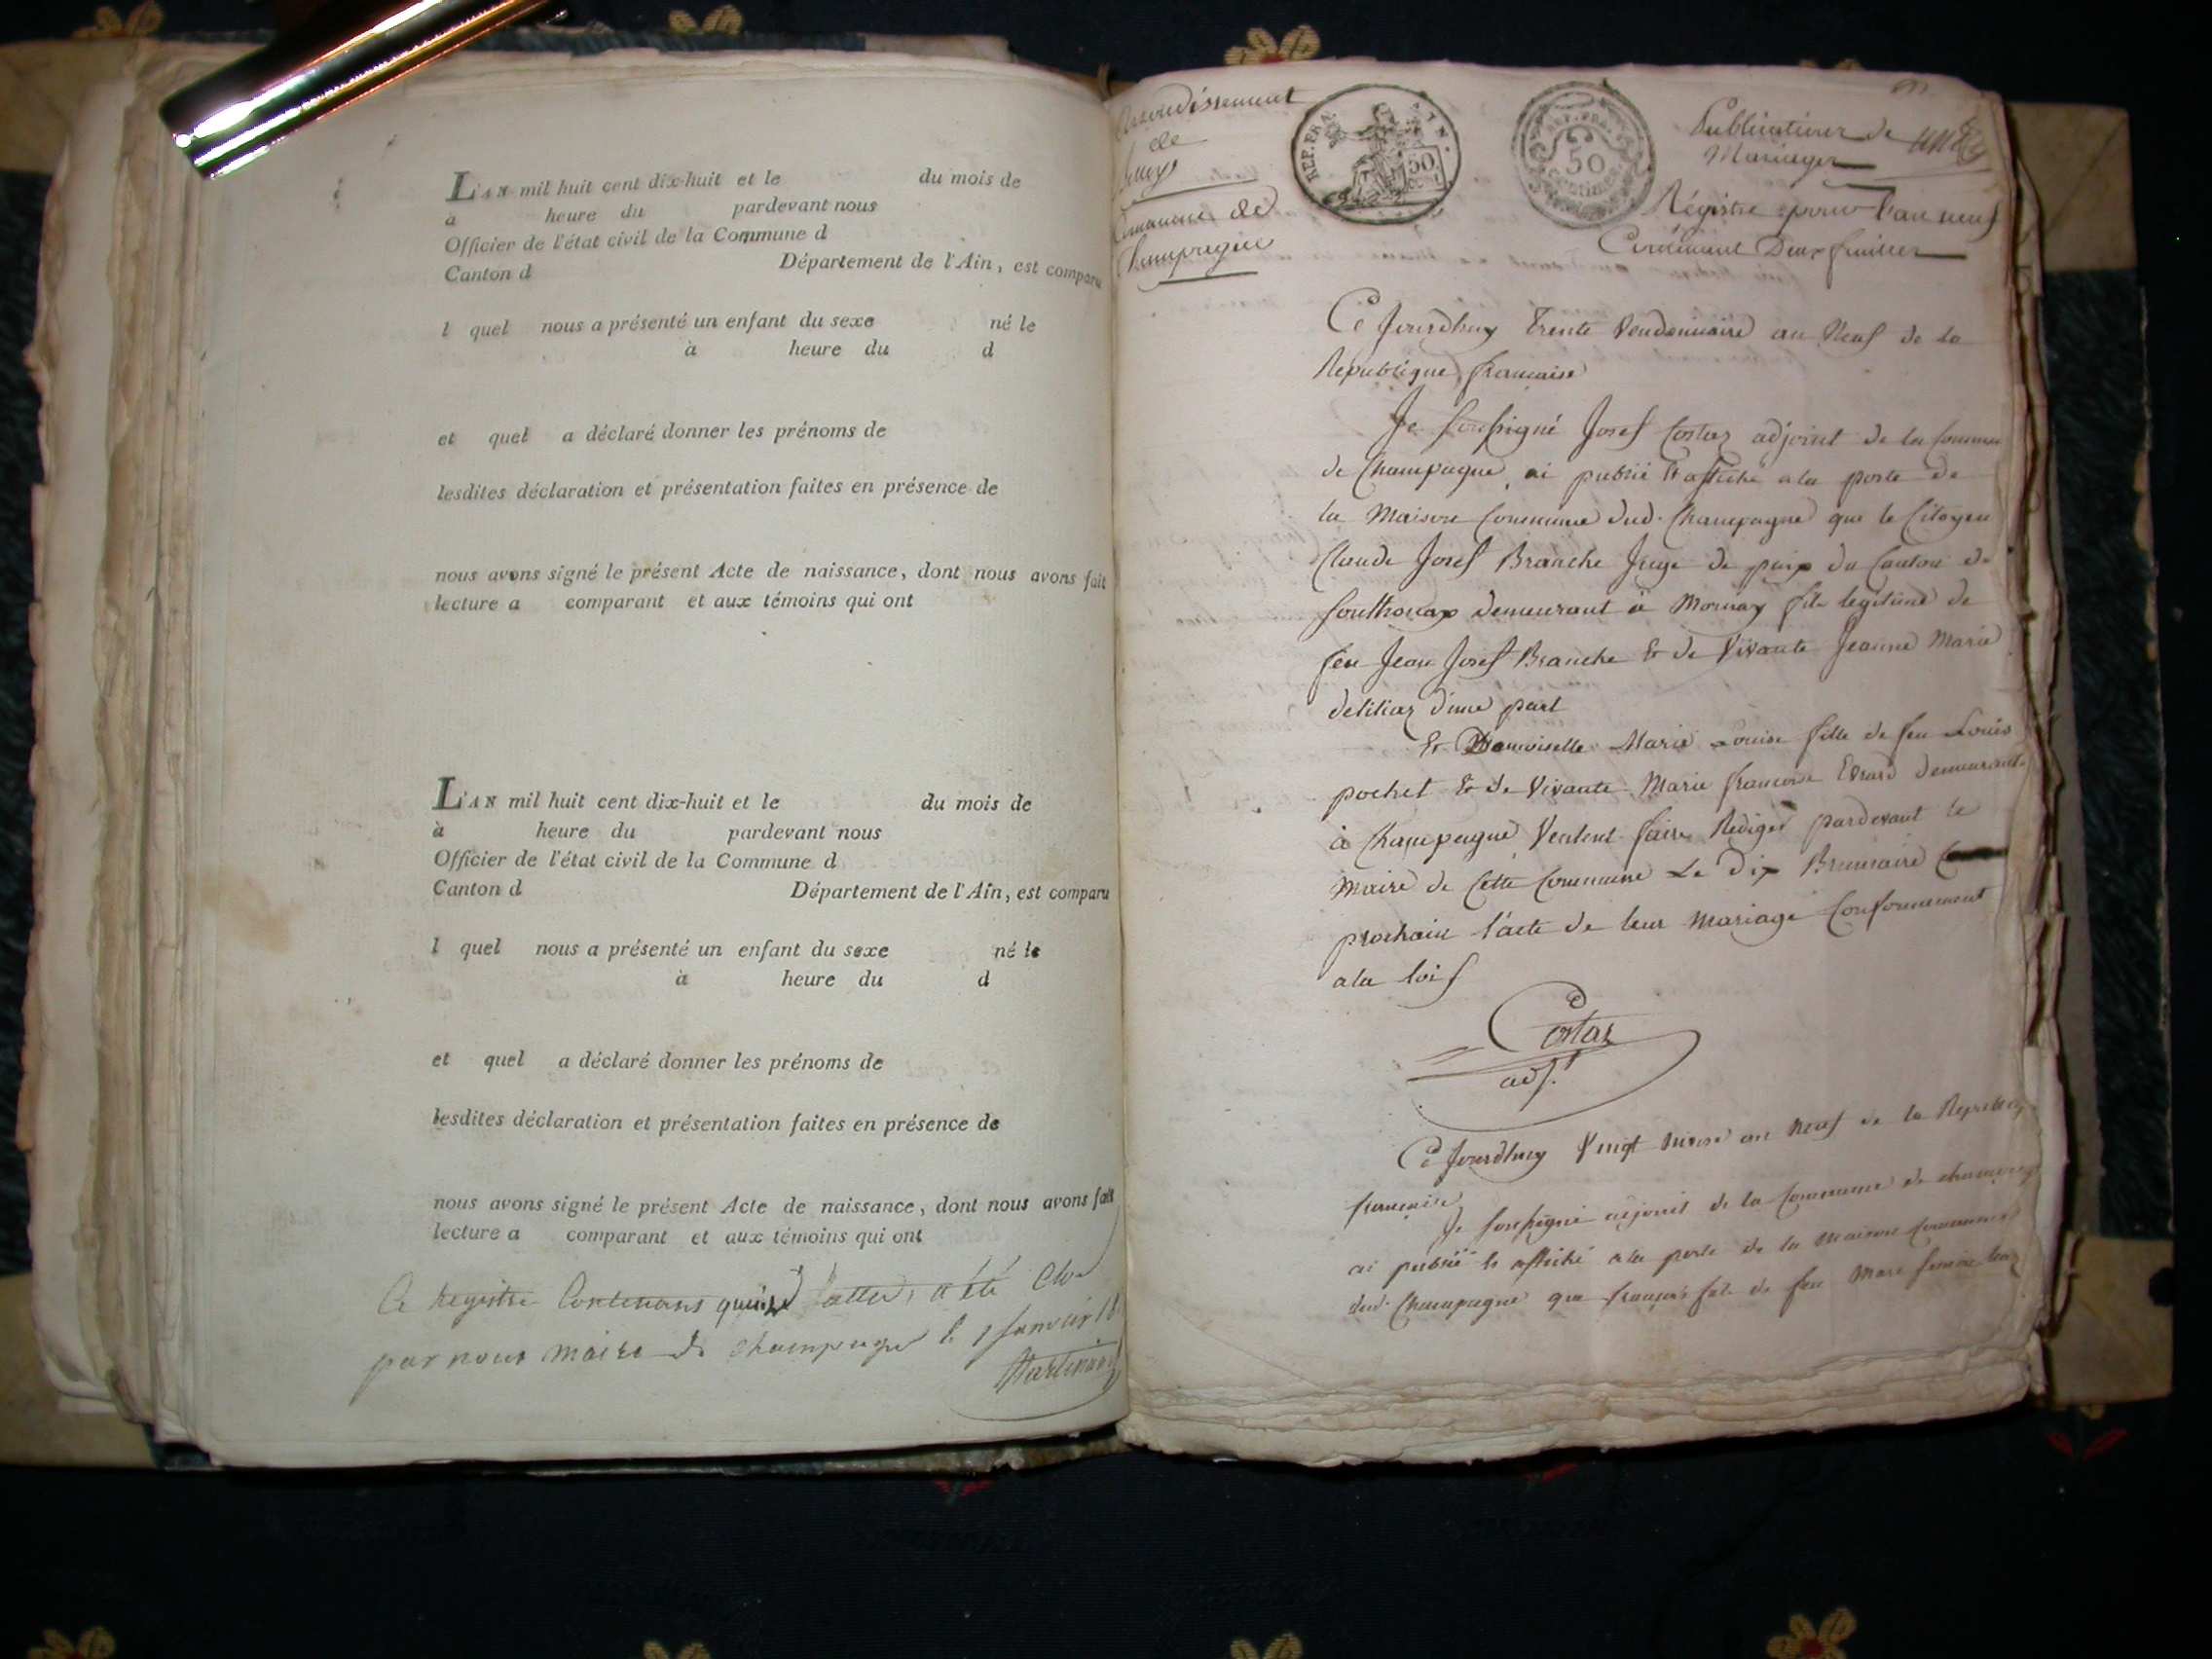 L'AN mil huit cent dix-huit et le du mois de
a heure du pardevant nous
Officier de l'état civil de la Commune d
Canton d Département de l'Ain, est comparu
l quel nous a présenté un enfant du sexe né le
à heure du d
et quel a déclaré donner les prénoms de
lesdites déclaration et présentation faites en présence de
nous avons signé le présent Acte de naissance, dont nous avons fait
lecture a comparant et aux témoins qui ont
L'AN mil huit cent dix-huit et le du mois de
à heure du pardevant nous
Officier de l'état civil de la Commune d
Canton d Département de l'Ain, est comparu
l quel nous a présenté un enfant du sexe né le
à heure du d
et quel a déclaré donner les prénoms de
lesdites déclaration et présentation faites en présence de
nous avons signé le présent Acte de naissance, dont nous avons fait
lecture a comparant et aux témoins qui ont
Ce Registre Contenans a été Clos
par nous maire de champagne le 1 Janvier 18
Martinand
Arrondissement
de
Commune de
Champagne
REP. FRA.
50
REP. FRA.
50
Centimes
Publications de
Mariages
Régistre pour l'an neuf
Contenant Deux feuilles
Ce Jourdhuy Trente Vendemiaire an Neuf de la
Republique francaise
Je soussigné Josef Costaz adjoint de la Commune
de Champagne, ai publié & affiché a la porte de
la Maison Commune dud. Champagne que le Citoyen
Claude Josef Branche Juge de paix du Canton de
Southonax demeurant à Mornay fils legitime de
feu Jean Josef Branche & de Vivante Jeanne Marie
d'une part
& Demoiselle Marie Louise fille de feu Louis
pochet & de Vivante Marie francoise Evrard demeurant
à Champagne Veulent faire Rediger pardevant le
Maire de Cette Commune Le Dix Brumaire
prochain l'acte de leur Mariage Conformement
a la loi
Costaz
adj.t
Ce Jourdhuy Vingt Nivose an Neuf de la Republiq
francaise
Je soussigné adjoint de la Commune de champagne
ai publié & affiché a la porte de la Maison Commune
dud. Champagne que françois fils de feu Marc